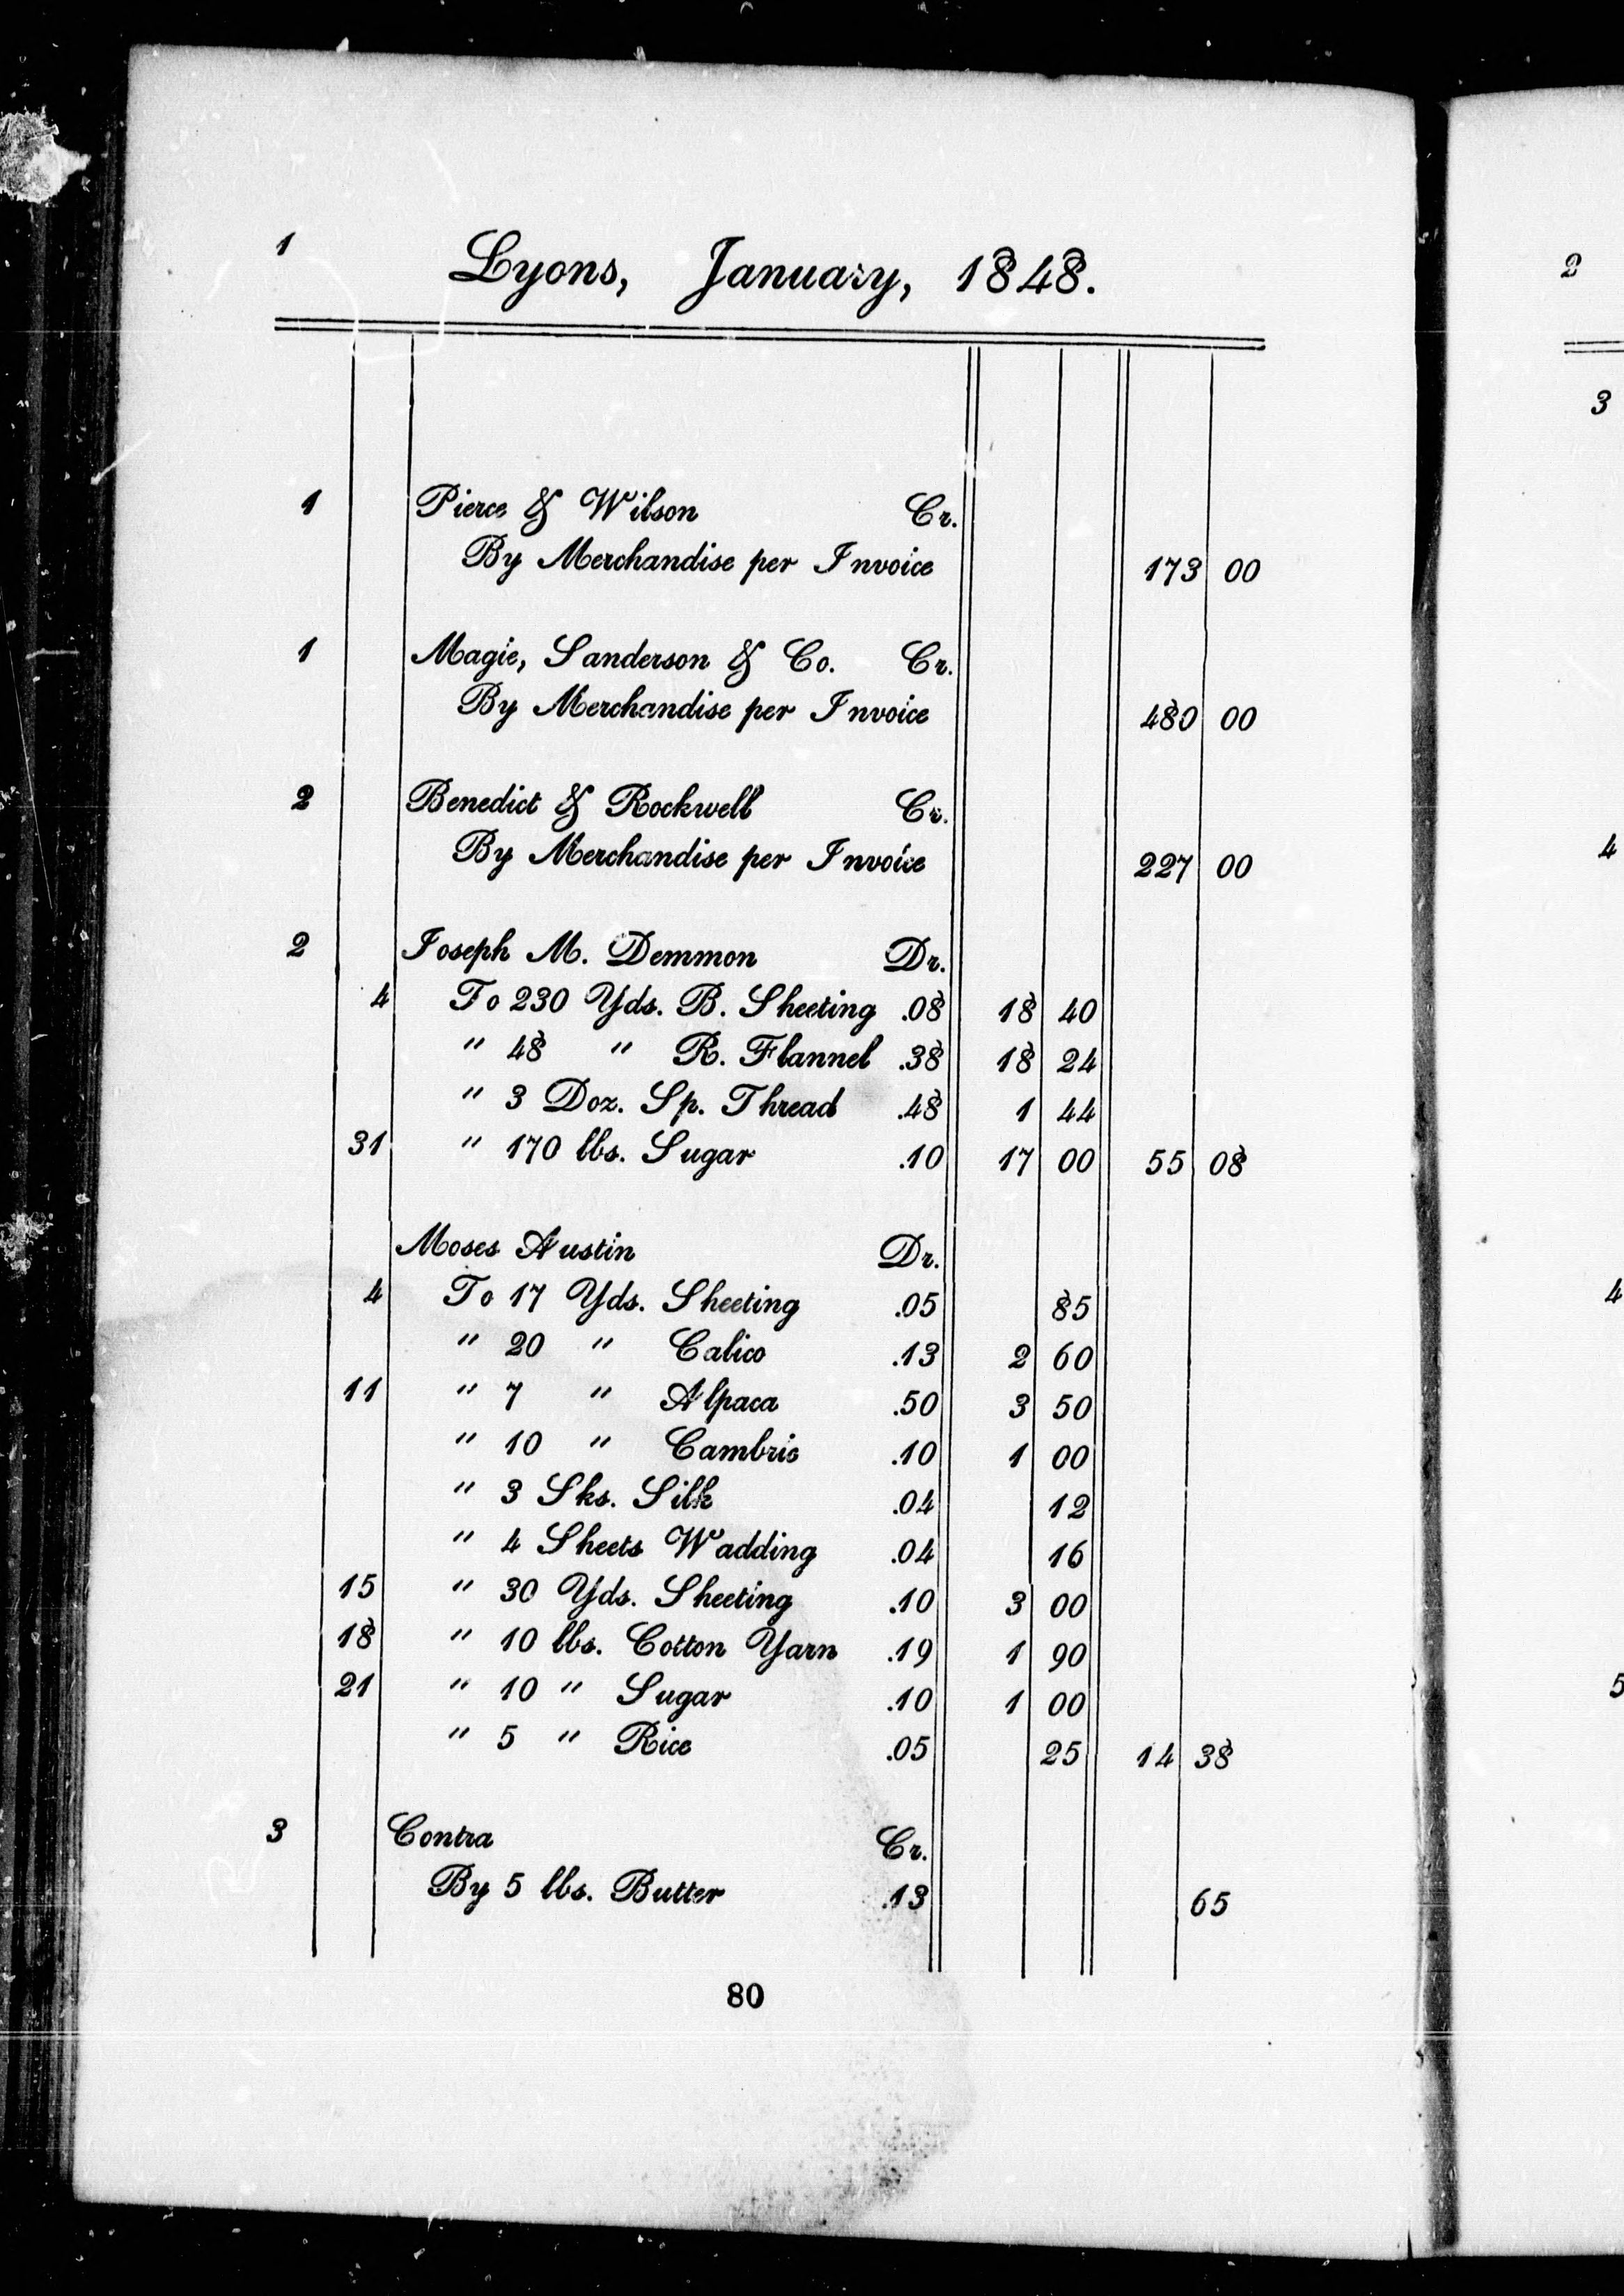 1 Lyons, January, 1848.
1 Pierce & Wilson Cr.
By Merchandise per Invoice 173 00
1 Magie, Sanderson & Co. Cr.
By Merchandise per Invoice 480 00
2 Benedict & Rockwell Cr.
By Merchandise per Invoice 227 00
2 Joseph M. Demmon Dr.
4 To 230 Yds. B. Sheeting .08 18 40
" 48 " R. Flannel .38 18 24
" 3 Doz. Sp. Thread .48 1 44
31 " 170 lbs. Sugar .10 17 00 55 08
Moses Austin Dr.
4 To 17 Yds. Sheeting .05 85
" 20 " Calico .13 2 60
11 " 7 " Alpaca .50 3 50
" 10 " Cambric .10 1 00
" 3 Sks. Silk .04 12
" 4 Sheets Wadding .04 16
15 " 30 Yds. Sheeting .10 3 00
18 " 10 lbs. Cotton Yarn .19 1 90
21 " 10 " Sugar .10 1 00
" 5 " Rice .05 25 14 38
3 Contra Cr.
By 5 lbs. Butter .13 65
80
2
3
4
4
5